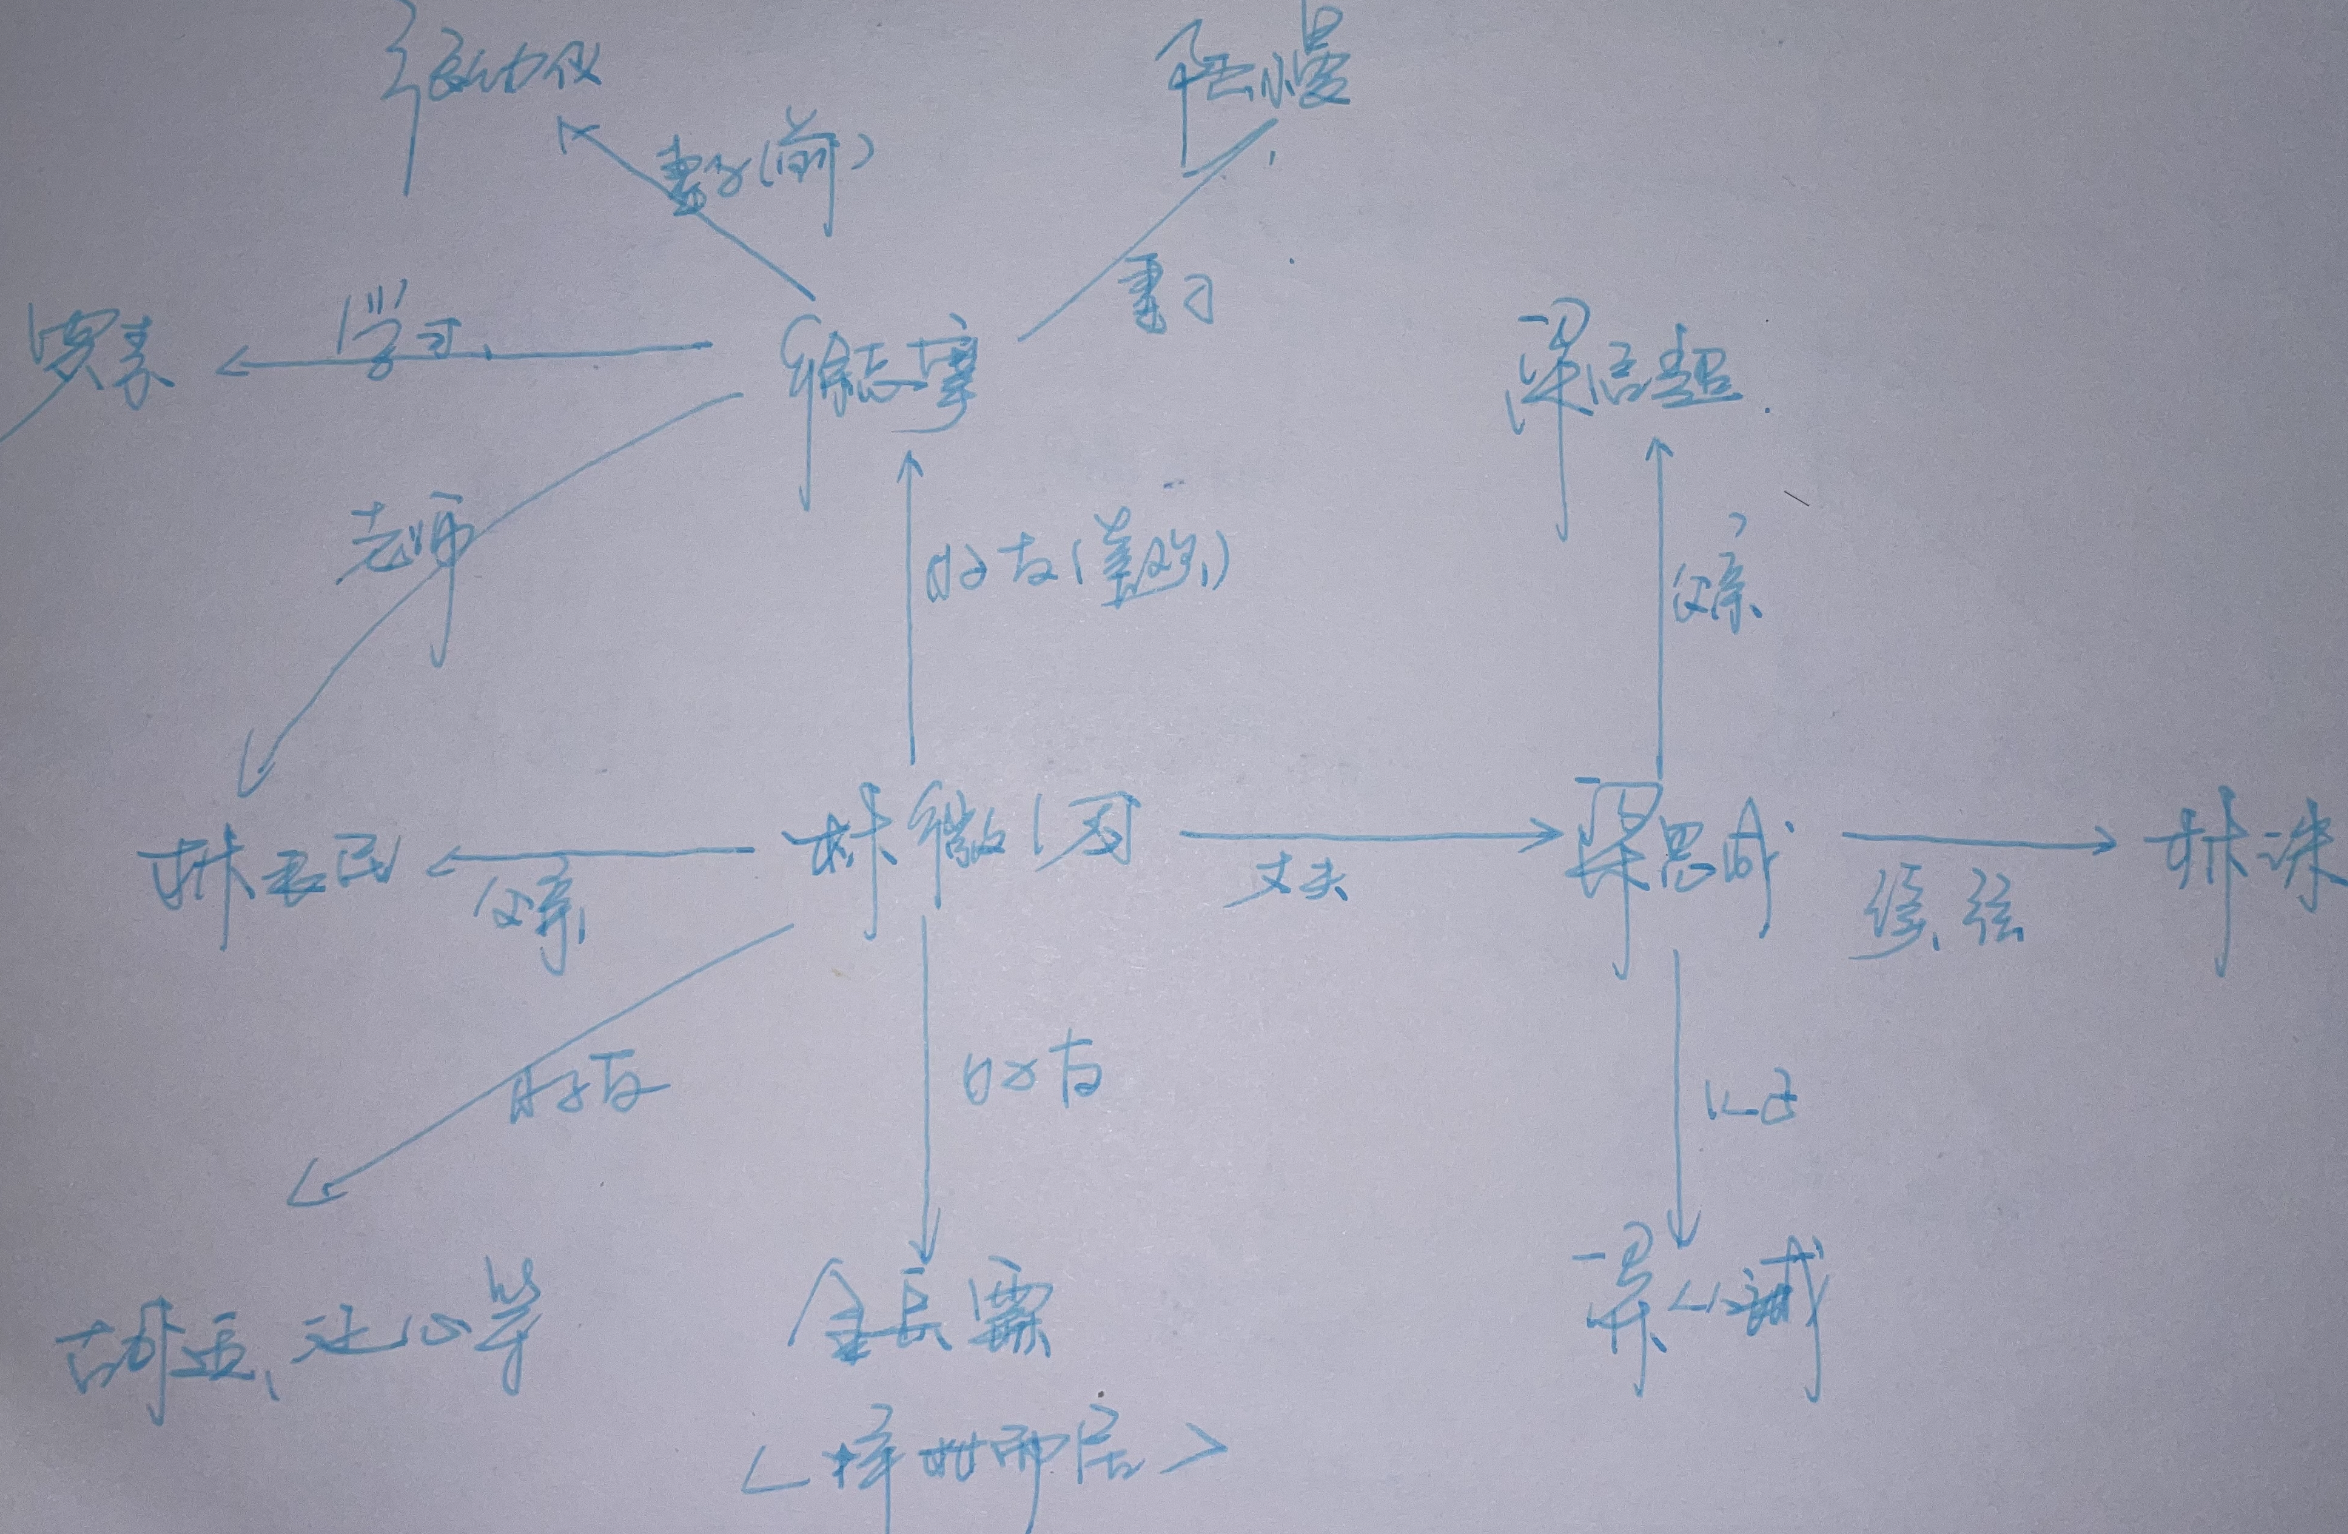 张幼仪
陆小曼
妻子(前)
妻子
罗素
学习
徐志摩
梁启超
老师
好友(
父亲
林长民
父亲
林徽因
丈夫
梁思成
续弦
林洙
好友
好友
儿子
胡适、沈从等
金岳霖
梁从诫
<择林而居>